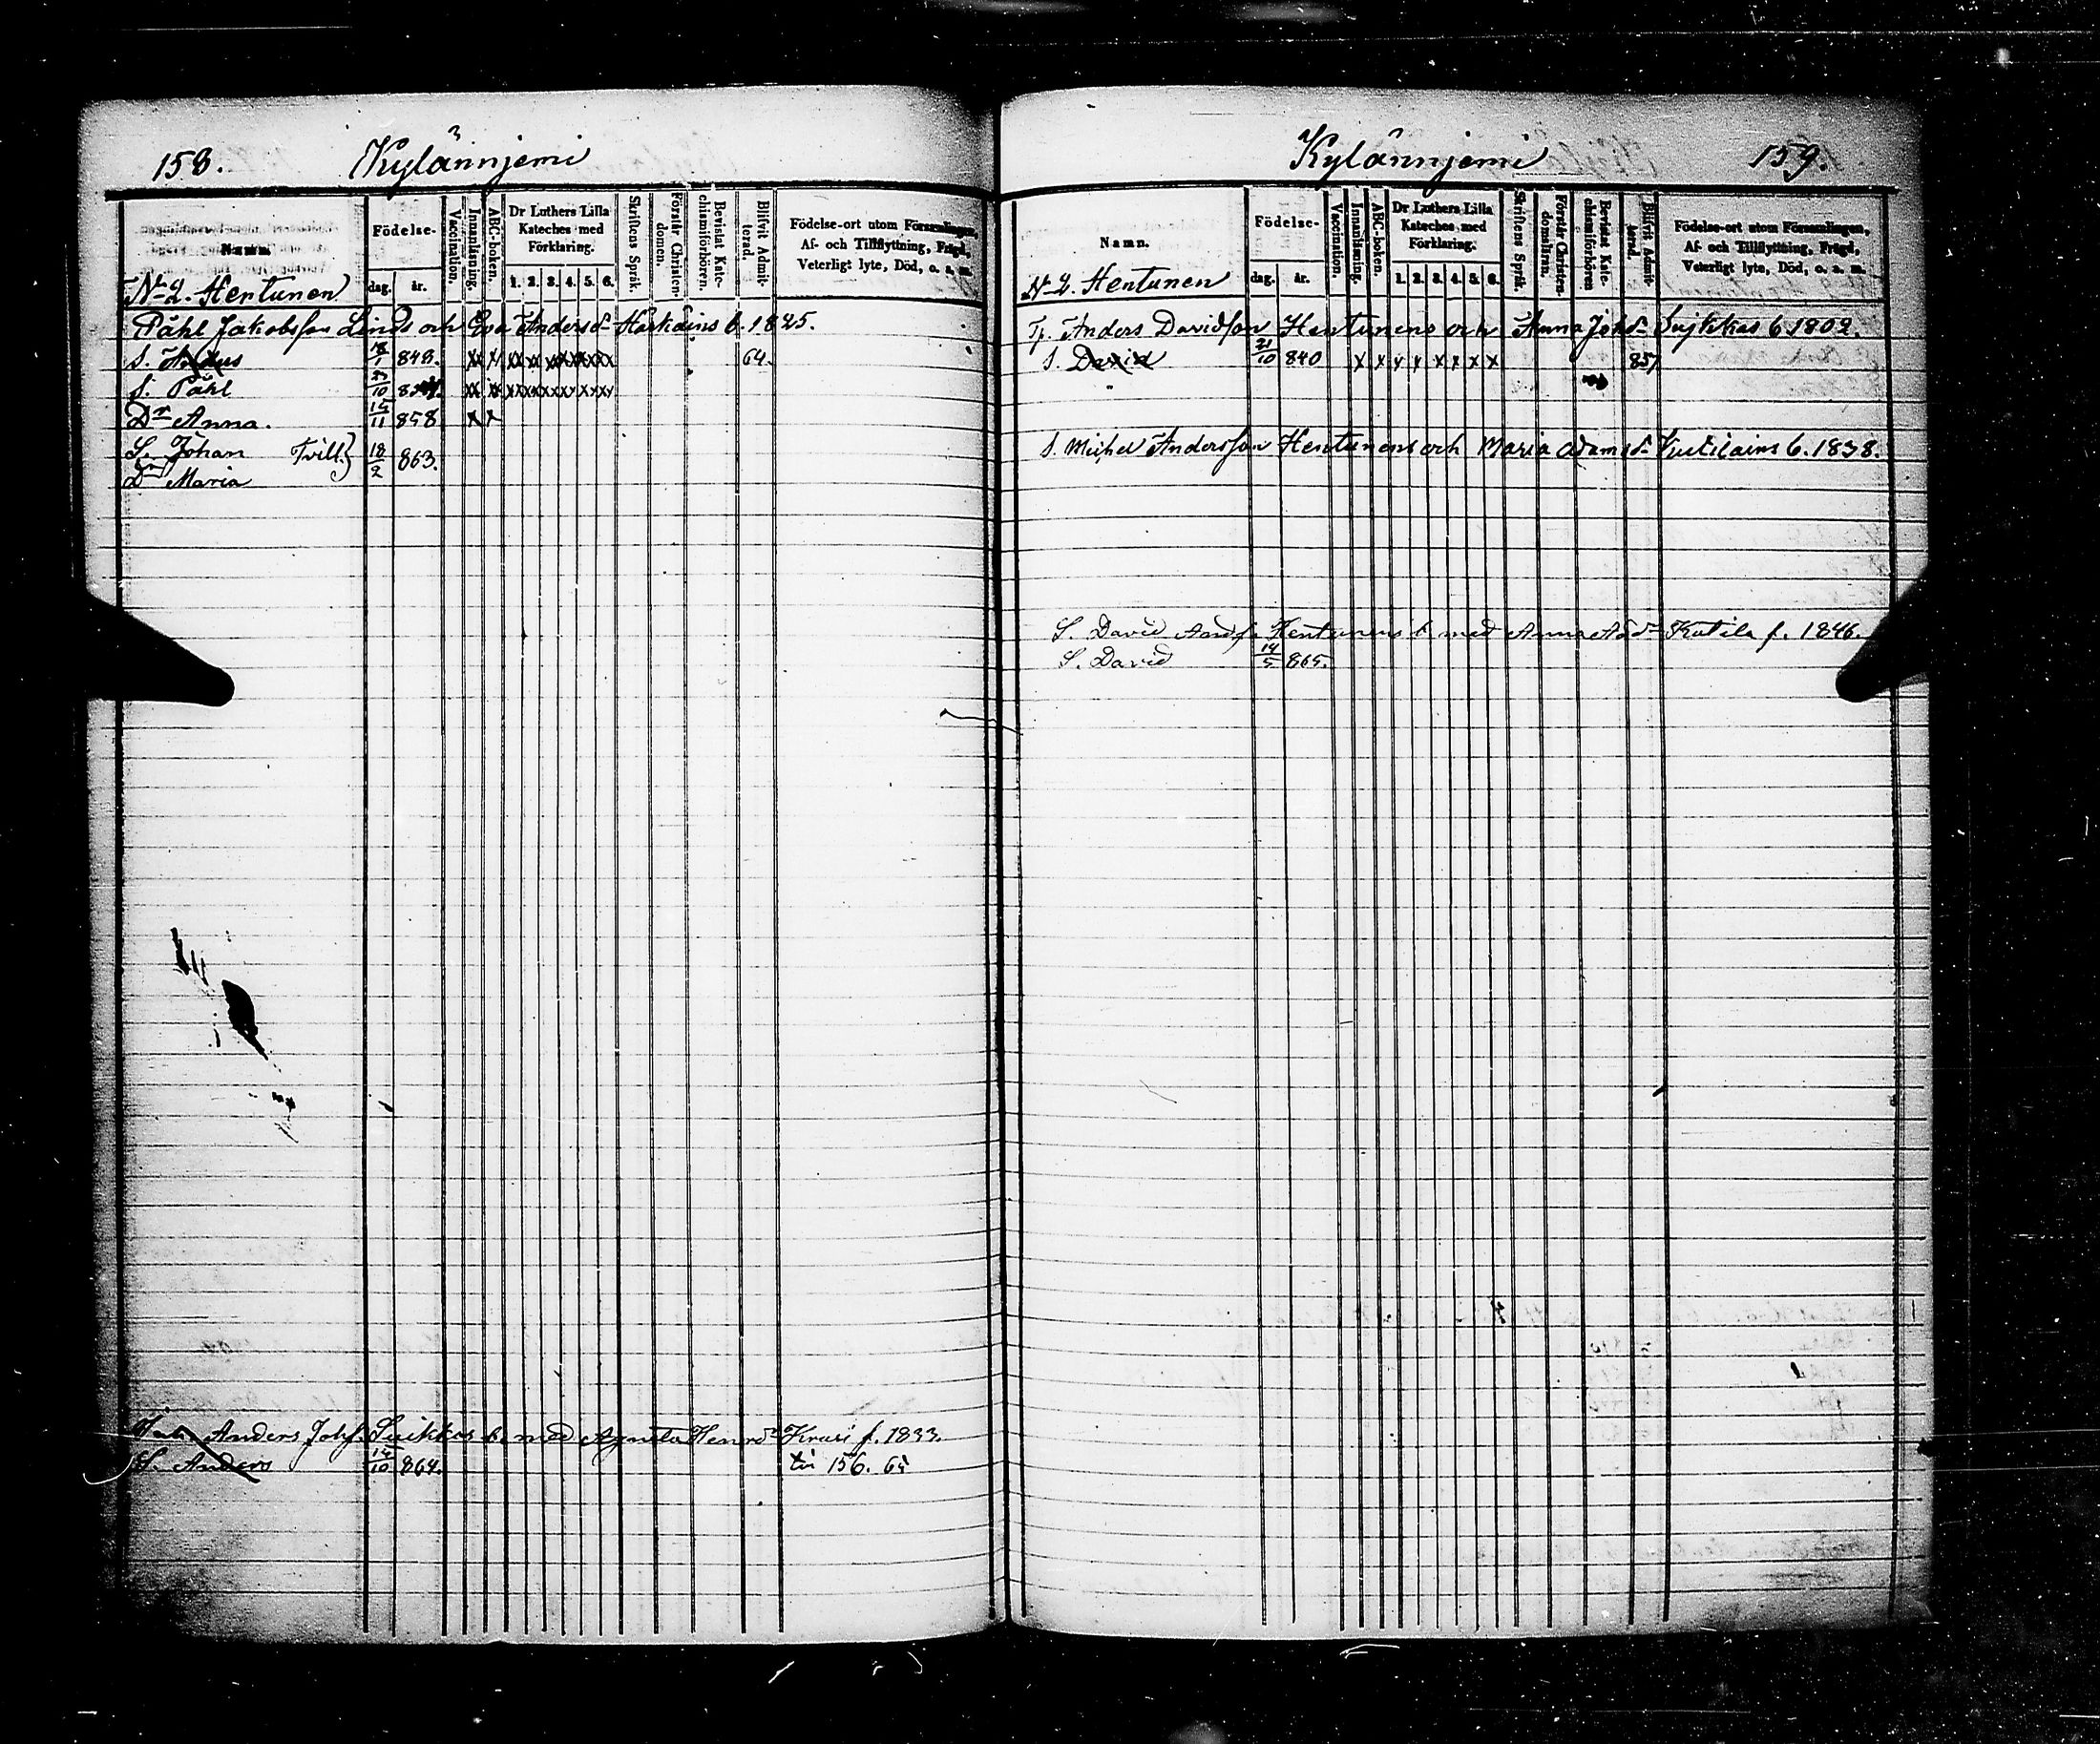 158. Kylänniemi
Namn. Födelse- Vaccination. Innanläsning. ABC-boken. Dr Luthers Lilla Kateches med Förklaring. Skriftens Språk. Förstår Christendomen. Bevistat Katechismiförhören. Blifvit Admitterad. Födelse-ort utom Församlingen, Af- och Tillflyttning, Frägd, Veterligt lyte, Död, o. s. m.
dag. år. 1. 2. 3. 4. 5. 6.
N 2. Hentunen
Påhl Jakobsson Linds och Eva Andersdr Härkäins b. 1825.
S. 18/1 848. xx x xx xx xx xx xx xx 64.
S. Påhl
Dr Anna. 15/11 858 x x
S. Johan Tvill.} 18/2 863.
Dr Maria
Anders Johs. Suikkas b. med Agneta Henrdr Krusi f. 1833.
S. Anders 14/10 864. 156. 65
Kylänniemi 159.
Namn. Födelse- Vaccination. Innanläsning. ABC-boken. Dr Luthers Lilla Kateches med Förklaring. Skriftens Språk. Förstår Christendomsläran. Bevistat Katechismiförhören Blifvit Admitterad. Födelse-ort utom Församlingen, Af- och Tillflyttning, Frägd, Veterligt lyte, Död, o. s. m.
dag. år. 1. 2. 3. 4. 5. 6.
N 2. Hentunen
Anders Davidsson Hentunens och Anna Johdr Sujkkas b. 1802.
S. David 21/10 840 x x x x x x x x 857
S. Michel Andersson Hentunens och Maria Adamsdr Kutilains b. 1838.
S. David Andr. Hentunens b. med Anna Kutila f. 1846.
S. David 14/5 865.